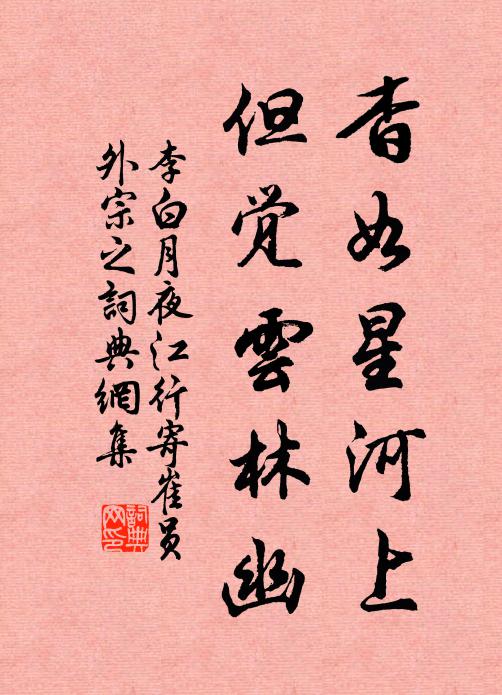 杳如星河上
但觉雲林幽
李白月夜江行寄崔员
外宗之詞典網集
詞典
网印